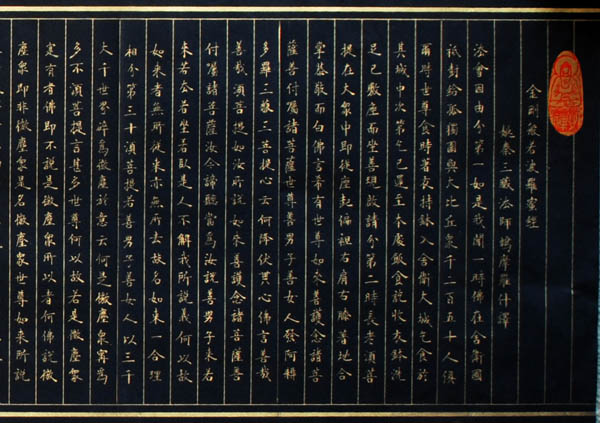 金剛般若波羅蜜經
姚秦三藏法師鳩摩羅什譯
法會因由分第一如是我聞一時佛在舍衛國
祇樹給孤獨園與大比丘眾千二百五十人俱
爾時世尊食時著衣持鉢入舍衛大城乞食於
其城中次第乞已還至本處飯食訖收衣鉢洗
足已敷座而坐善現啟請分第二時長老須菩
提在大眾中即從座起偏袒右肩右膝著地合
掌恭敬而白佛言希有世尊如來善護念諸菩
薩善付囑諸菩薩世尊善男子善女人發阿耨
多羅三藐三菩提心云何降伏其心佛言善哉
善哉須菩提如汝所說如來善護念諸菩薩善
付囑諸菩薩汝今諦聽當為汝說善男子來若
來若去若坐若臥是人不解我所說義何以故
如來者無所從來亦無所去故名如來一合理
相分第三十須菩提若善男子善女人以三千
大千世界碎為微塵於意云何是微塵眾寧為
多不須菩提言甚多世尊何以故若是微塵眾
寔有者佛即不說是微塵眾所以者何佛說微
塵眾即非微塵眾是名微塵眾世尊如來所說